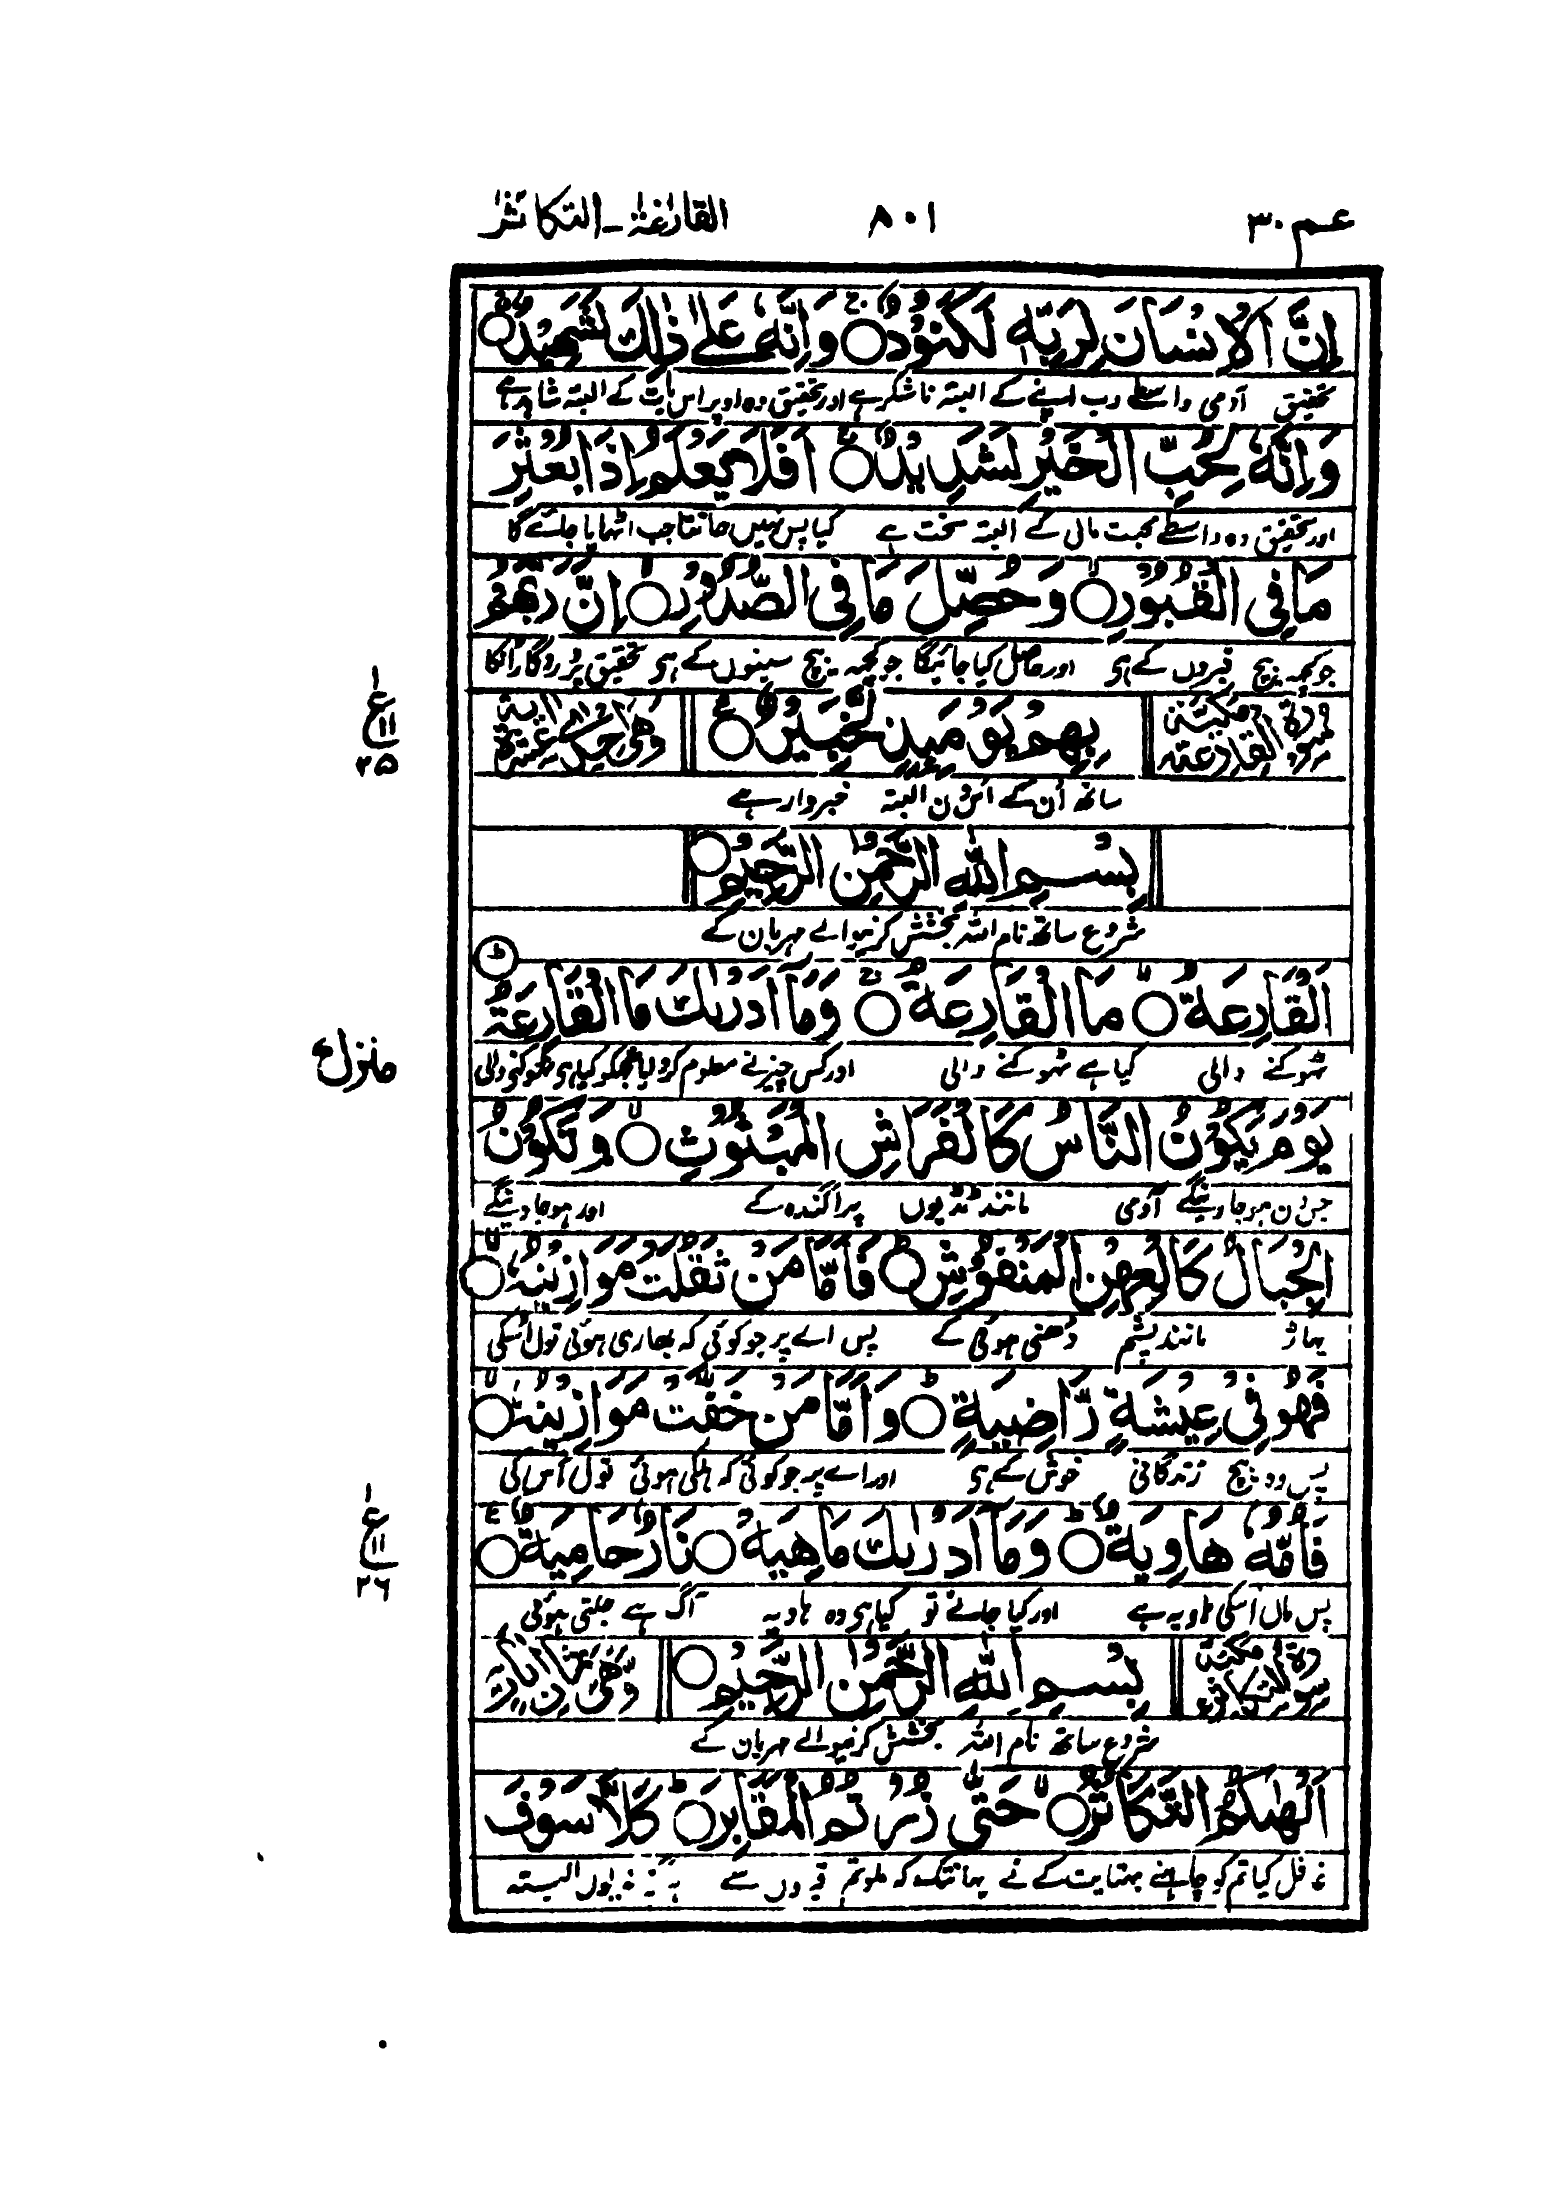 عم ٣٠ ٨٠١ القارعة - التكاثر
اِنَّ الْاِنْسَانَ لِرَبِّهٖ لَكَنُوْدٌ ۚ وَاِنَّهٗ عَلٰى ذٰلِكَ لَشَهِيْدٌ ۚ
تحقیق آدمی واسطے رب اپنے کے البتہ ناشکر ہے اور تحقیق وہ اوپر اس بات کے البتہ شاہد ہے
وَاِنَّهٗ لِحُبِّ الْخَيْرِ لَشَدِيْدٌ ؕ اَفَلَا يَعْلَمُ اِذَا بُعْثِرَ
اور تحقیق وہ واسطے محبت مال کے البتہ سخت ہے کیا پس نہیں جانتا جب اٹھایا جائے گا
مَا فِى الْقُبُوْرِ ۙ وَحُصِّلَ مَا فِى الصُّدُوْرِ ۙ اِنَّ رَبَّهُمْ
جو کچھ بیچ قبروں کے ہی اور حاصل کیا جائیگا جو کچھ بیچ سینوں کے ہی تحقیق پروردگار انکا
ع ١١ ٢٥
سورة القارعة مكية بِهِمْ يَوْمَئِذٍ لَّخَبِيْرٌ وهى احدى عشرة اية
ساتھ اُن کے اُس دن البتہ خبردار ہے
بِسْمِ اللّٰهِ الرَّحْمٰنِ الرَّحِيْمِ
شروع ساتھ نام اللہ بخشش کرنیوالے مہربان کے
اَلْقَارِعَةُ ۙ مَا الْقَارِعَةُ ۚ وَمَاۤ اَدْرٰىكَ مَا الْقَارِعَةُ ؕ
منزل
ٹھوکنے والی کیا ہے ٹھوکنے والی اور کس چیز نے معلوم کروایا تجھکو کیا ہی ٹھوکنی والی
يَوْمَ يَكُوْنُ النَّاسُ كَالْفَرَاشِ الْمَبْثُوْثِ ۙ وَتَكُوْنُ
جس دن ہو جاوینگے آدمی مانند ٹڈیوں پراگندہ کے اور ہو جاوینگے
الْجِبَالُ كَالْعِهْنِ الْمَنْفُوْشِ ؕ فَاَمَّا مَنْ ثَقُلَتْ مَوَازِيْنُهٗ ۙ
پہاڑ مانند پشم دُھنی ہوئی کے پس اے پر جو کوئی کہ بھاری ہوئی تول اُسکی
فَهُوَ فِىْ عِيْشَةٍ رَّاضِيَةٍ ؕ وَاَمَّا مَنْ خَفَّتْ مَوَازِيْنُهٗ ۙ
پس وہ بیچ زندگانی خوش کے ہی اور اے پر جو کوئی کہ ہلکی ہوئی تول اُس کی
فَاُمُّهٗ هَاوِيَةٌ ؕ وَمَاۤ اَدْرٰىكَ مَاهِيَهْ نَارٌ حَامِيَةٌ
ع ١١ ٢٦
پس ماں اُسکی ہاویہ ہے اور کیا جانے تو کیا ہی وہ ہاویہ آگ ہے جلتی ہوئی
سورة التكاثر مكية بِسْمِ اللّٰهِ الرَّحْمٰنِ الرَّحِيْمِ وهى ثمان ايات
شروع ساتھ نام اللہ بخشش کرنیوالے مہربان کے
اَلْهٰىكُمُ التَّكَاثُرُ ۙ حَتّٰى زُرْتُمُ الْمَقَابِرَ ؕ كَلَّا سَوْفَ
غافل کیا تم کو چاہنے بہتایت کے نے یہانتک کہ ملو تم قبروں سے ہرگز نہ یوں البتہ